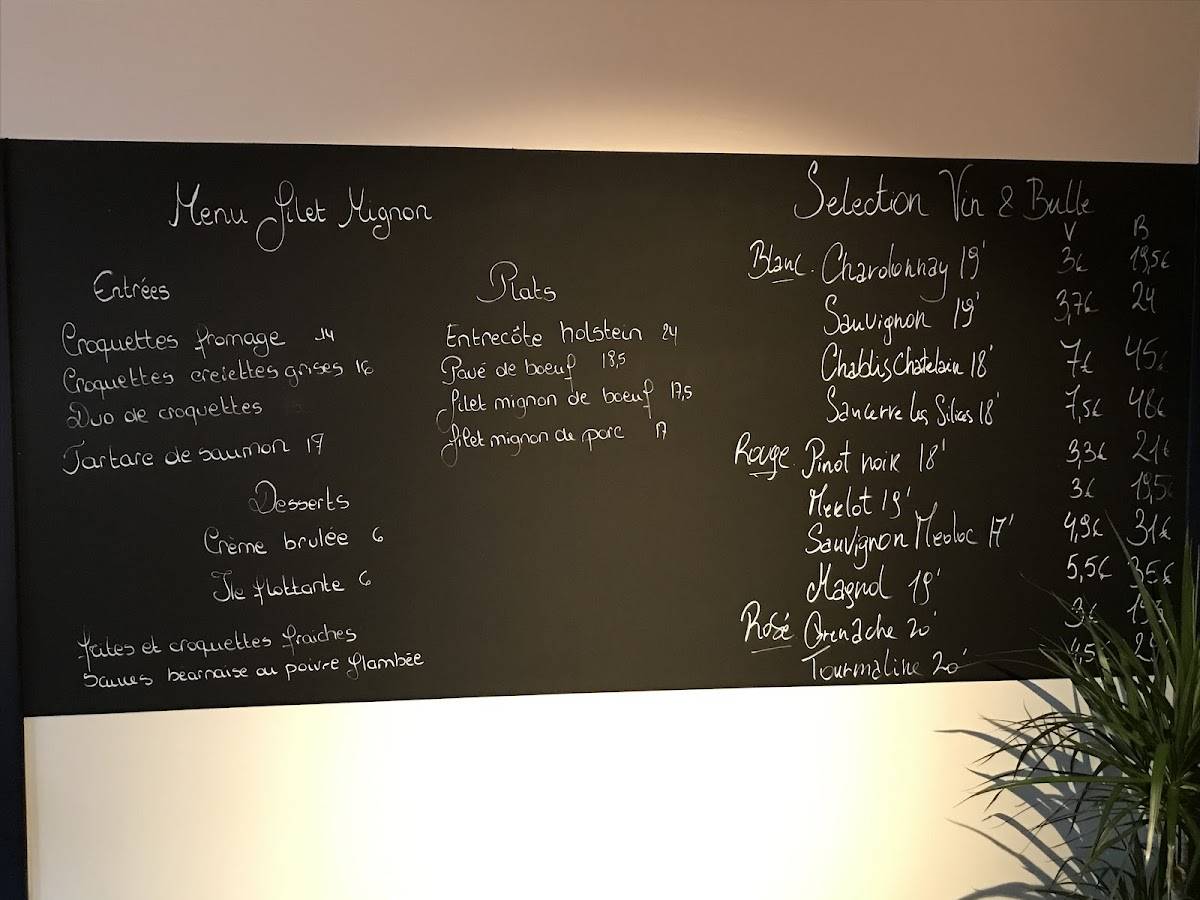 Menu Filet Mignon
Entrées
Croquettes fromage 14
Croquettes creiettes grises 16
Duo de croquettes
Tartare de saumon 17
Plats
Entrecôte holstein 24
Pavé de boeuf 18,5
Filet mignon de boeuf 17,5
Filet mignon de porc 17
Desserts
Crème brulée 6
Ile flottante 6
frites et croquettes fraiches
Sauces bearnaise ou poivre flambée
Selection Vin & Bulle
V B
Blanc. Chardonnay 19' 3€ 19,5€
Sauvignon 19' 3,7€ 24
Chablis Chatelain 18' 7€ 45€
Sancerre les Silices 18' 7,5€ 48€
Rouge Pinot noir 18' 3,3€ 21€
Merlot 19' 3€ 19,5€
Sauvignon Medoc 17' 4,9€ 31€
Magnol 19' 5,5€ 35€
Rosé Grenache 20' 3€
Tourmaline 20' 4,5